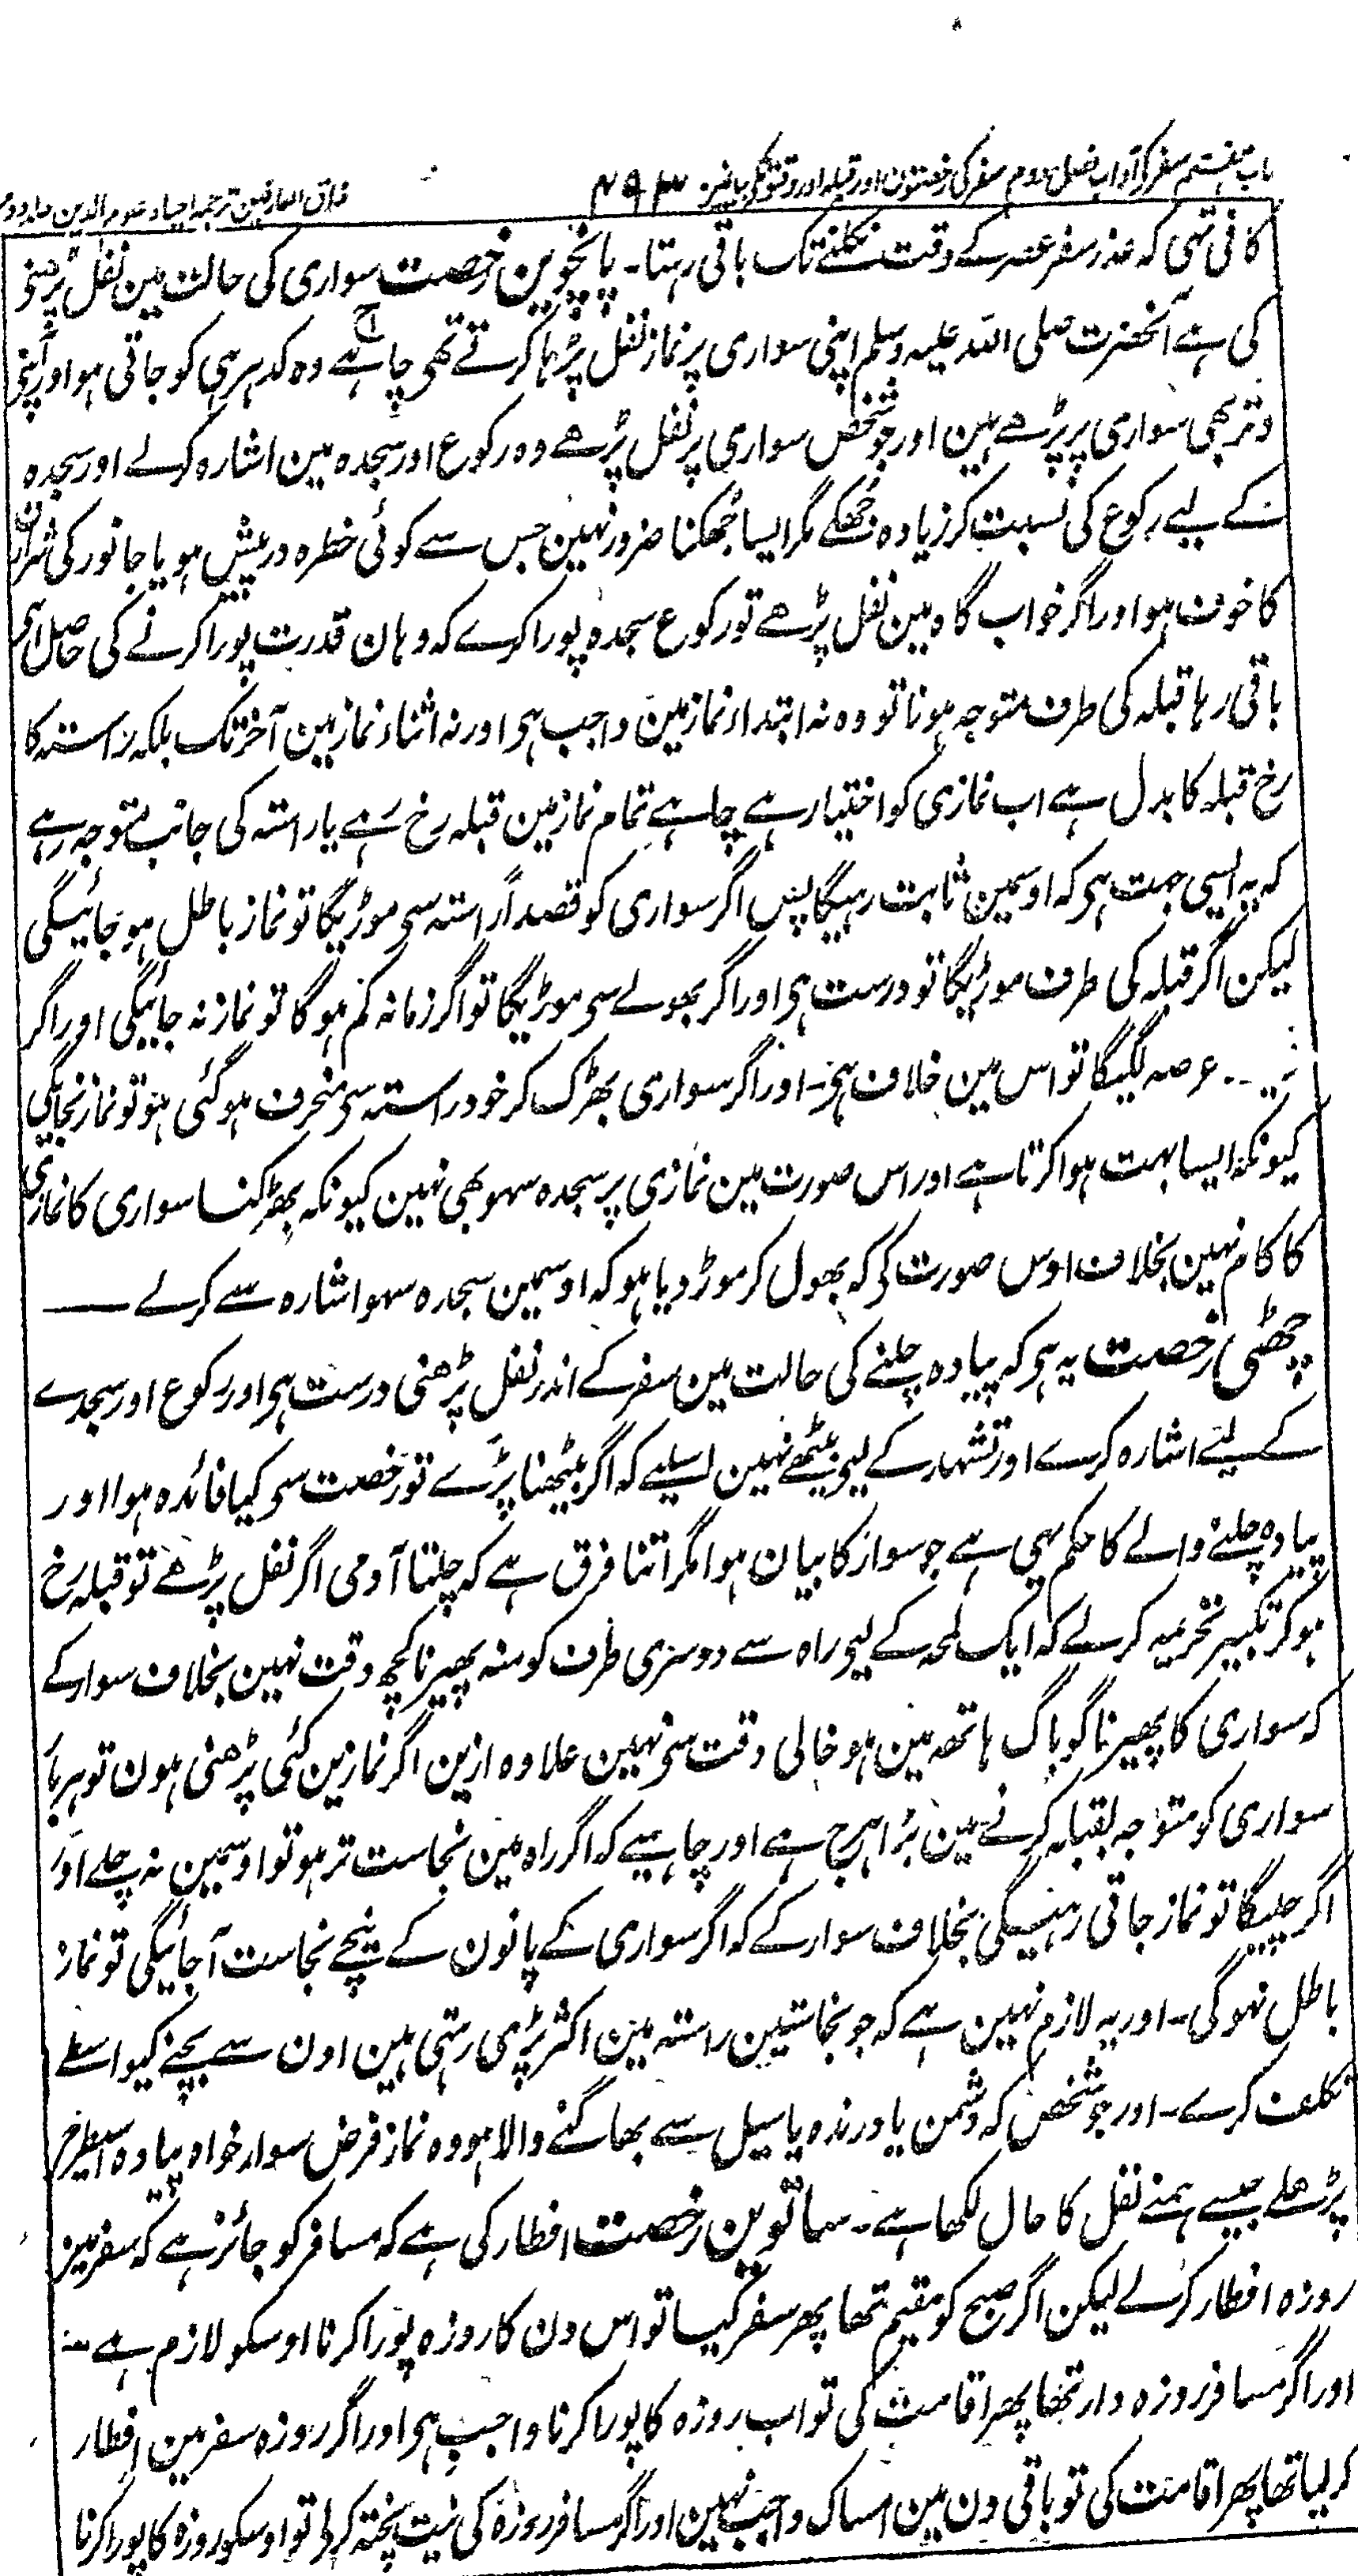 باب ہفتم سفر کے آداب فصل دوم سفر کی رخصتون اور قبلہ اور وقتونکے بیانمین ۴۹۳ مذاق العارفین ترجمہ احیاء علوم الدین جلد دوم
کافی تھی کہ عذر سفر عصر کے وقت نکلنے تک باقی رہتا۔ پانچوین رخصت سواری کی حالت مین نفل پڑھنے
کی ہے آنحضرت صلی اللہ علیہ وسلم اپنی سواری پر نماز نفل پڑہا کرتے تھے چاہے وہ کدہر ہی کو جاتی ہو اور آپنے
وتر بھی سواری پر پڑھے ہین اور جو شخص سواری پر نفل پڑھے وہ رکوع اور سجدہ مین اشارہ کرلے اور سجدہ
کے لیے رکوع کی نسبت کر زیادہ جھکے مگر ایسا جھکنا ضرور نہین جس سے کوئی خطرہ درپیش ہو یا جانور کی شرارت
کا خوف ہو اور اگر خواب گاہ مین نفل پڑھے تو رکوع سجدہ پورا کرے کہ وہان قدرت پورا کرنے کی حاصل ہی
باقی رہا قبلہ کی طرف متوجہ ہونا تو وہ نہ ابتداء نماز مین واجب ہی اور نہ اثناء نماز مین آخر تک بلکہ راستہ کا
رخ قبلہ کا بدل ہے اب نمازی کو اختیار ہے چاہے تمام نماز مین قبلہ رخ رہے یا راستہ کی جانب متوجہ رہے
کہ یہ ایسی جہت ہی کہ اوسمین ثابت رہیگا پس اگر سواری کو قصداً راستہ سی موڑیگا تو نماز باطل ہو جائیگی
لیکن اگر قبلہ کی طرف موڑیگا تو درست ہی اور اگر بھولے سی موڑیگا تو اگر زمانہ کم ہوگا تو نماز نہ جائیگی اور اگر
عرصہ لگیگا تو اس مین خلاف ہی۔ اور اگر سواری بھڑک کر خود راستہ سی منحرف ہوگئی ہو تو نماز نجائیگی
کیونکہ ایسا بہت ہوا کرتا ہے اور اس صورت مین نمازی پر سجدہ سہو بھی نہین کیونکہ بھڑکنا سواری کا نمازی
کا کام نہین بخلاف اوس صورت کی کہ بھول کر موڑ دیا ہو کہ اوسمین سجدہ سہو اشارہ سے کرلے ——
چھٹی رخصت یہ ہی کہ پیادہ چلنے کی حالت مین سفر کے اندر نفل پڑھنی درست ہی اور رکوع اور سجدے
کے لیے اشارہ کرے اور تشہد کے لیے بیٹھے نہین اسلیے کہ اگر بیٹھنا پڑے تو رخصت سی کیا فائدہ ہوا اور
پیادہ چلنے والے کا حکم یہی ہے جو سوار کا بیان ہوا مگر اتنا فرق ہے کہ چلتا آدمی اگر نفل پڑھے تو قبلہ رخ
ہو کر تکبیر تحریمہ کرلے کہ ایک لمحہ کے لیے راہ سے دوسری طرف کو منہ پھیرنا کچھ دقت نہین بخلاف سوار کے
کہ سواری کا پھیرنا گو باگ ہاتھ مین ہو خالی دقت سی نہین علاوہ ازین اگر نمازین کئی پڑھنی ہون تو ہر بار
سواری کو متوجہ بقبلہ کرنے مین بڑا ہرج ہے اور چاہیے کہ اگر راہ مین نجاست تر ہو تو اوسمین نہ چلے اور
اگر چلیگا تو نماز جاتی رہیگی بخلاف سوار کے کہ اگر سواری کے پانون کے نیچے نجاست آجائیگی تو نماز
باطل نہوگی۔ اور یہ لازم نہین ہے کہ جو نجاستین راستہ مین اکثر پڑی رہتی ہین اون سے بچنے کیواسطے
تکلف کرے۔ اور جو شخص کہ دشمن یا درندہ یا سیل سے بھاگنے والا ہو وہ نماز فرض سوار خواہ پیادہ اسیطرح
پڑھلے جیسے ہمنے نفل کا حال لکھا ہے۔ ساتوین رخصت افطار کی ہے کہ مسافر کو جائز ہے کہ سفر مین
روزہ افطار کرلے لیکن اگر صبح کو مقیم تھا پھر سفر کیا تو اس دن کا روزہ پورا کرنا اوسکو لازم ہے
اور اگر مسافر روزہ دار تھا پھر اقامت کی تو اب روزہ کا پورا کرنا واجب ہی اور اگر روزہ سفر مین افطار
کرلیا تھا پھر اقامت کی تو باقی دن مین امساک واجب نہین اور اگر مسافر روزہ کی نیت پختہ کرلے تو اوسکو روزہ کا پورا کرنا